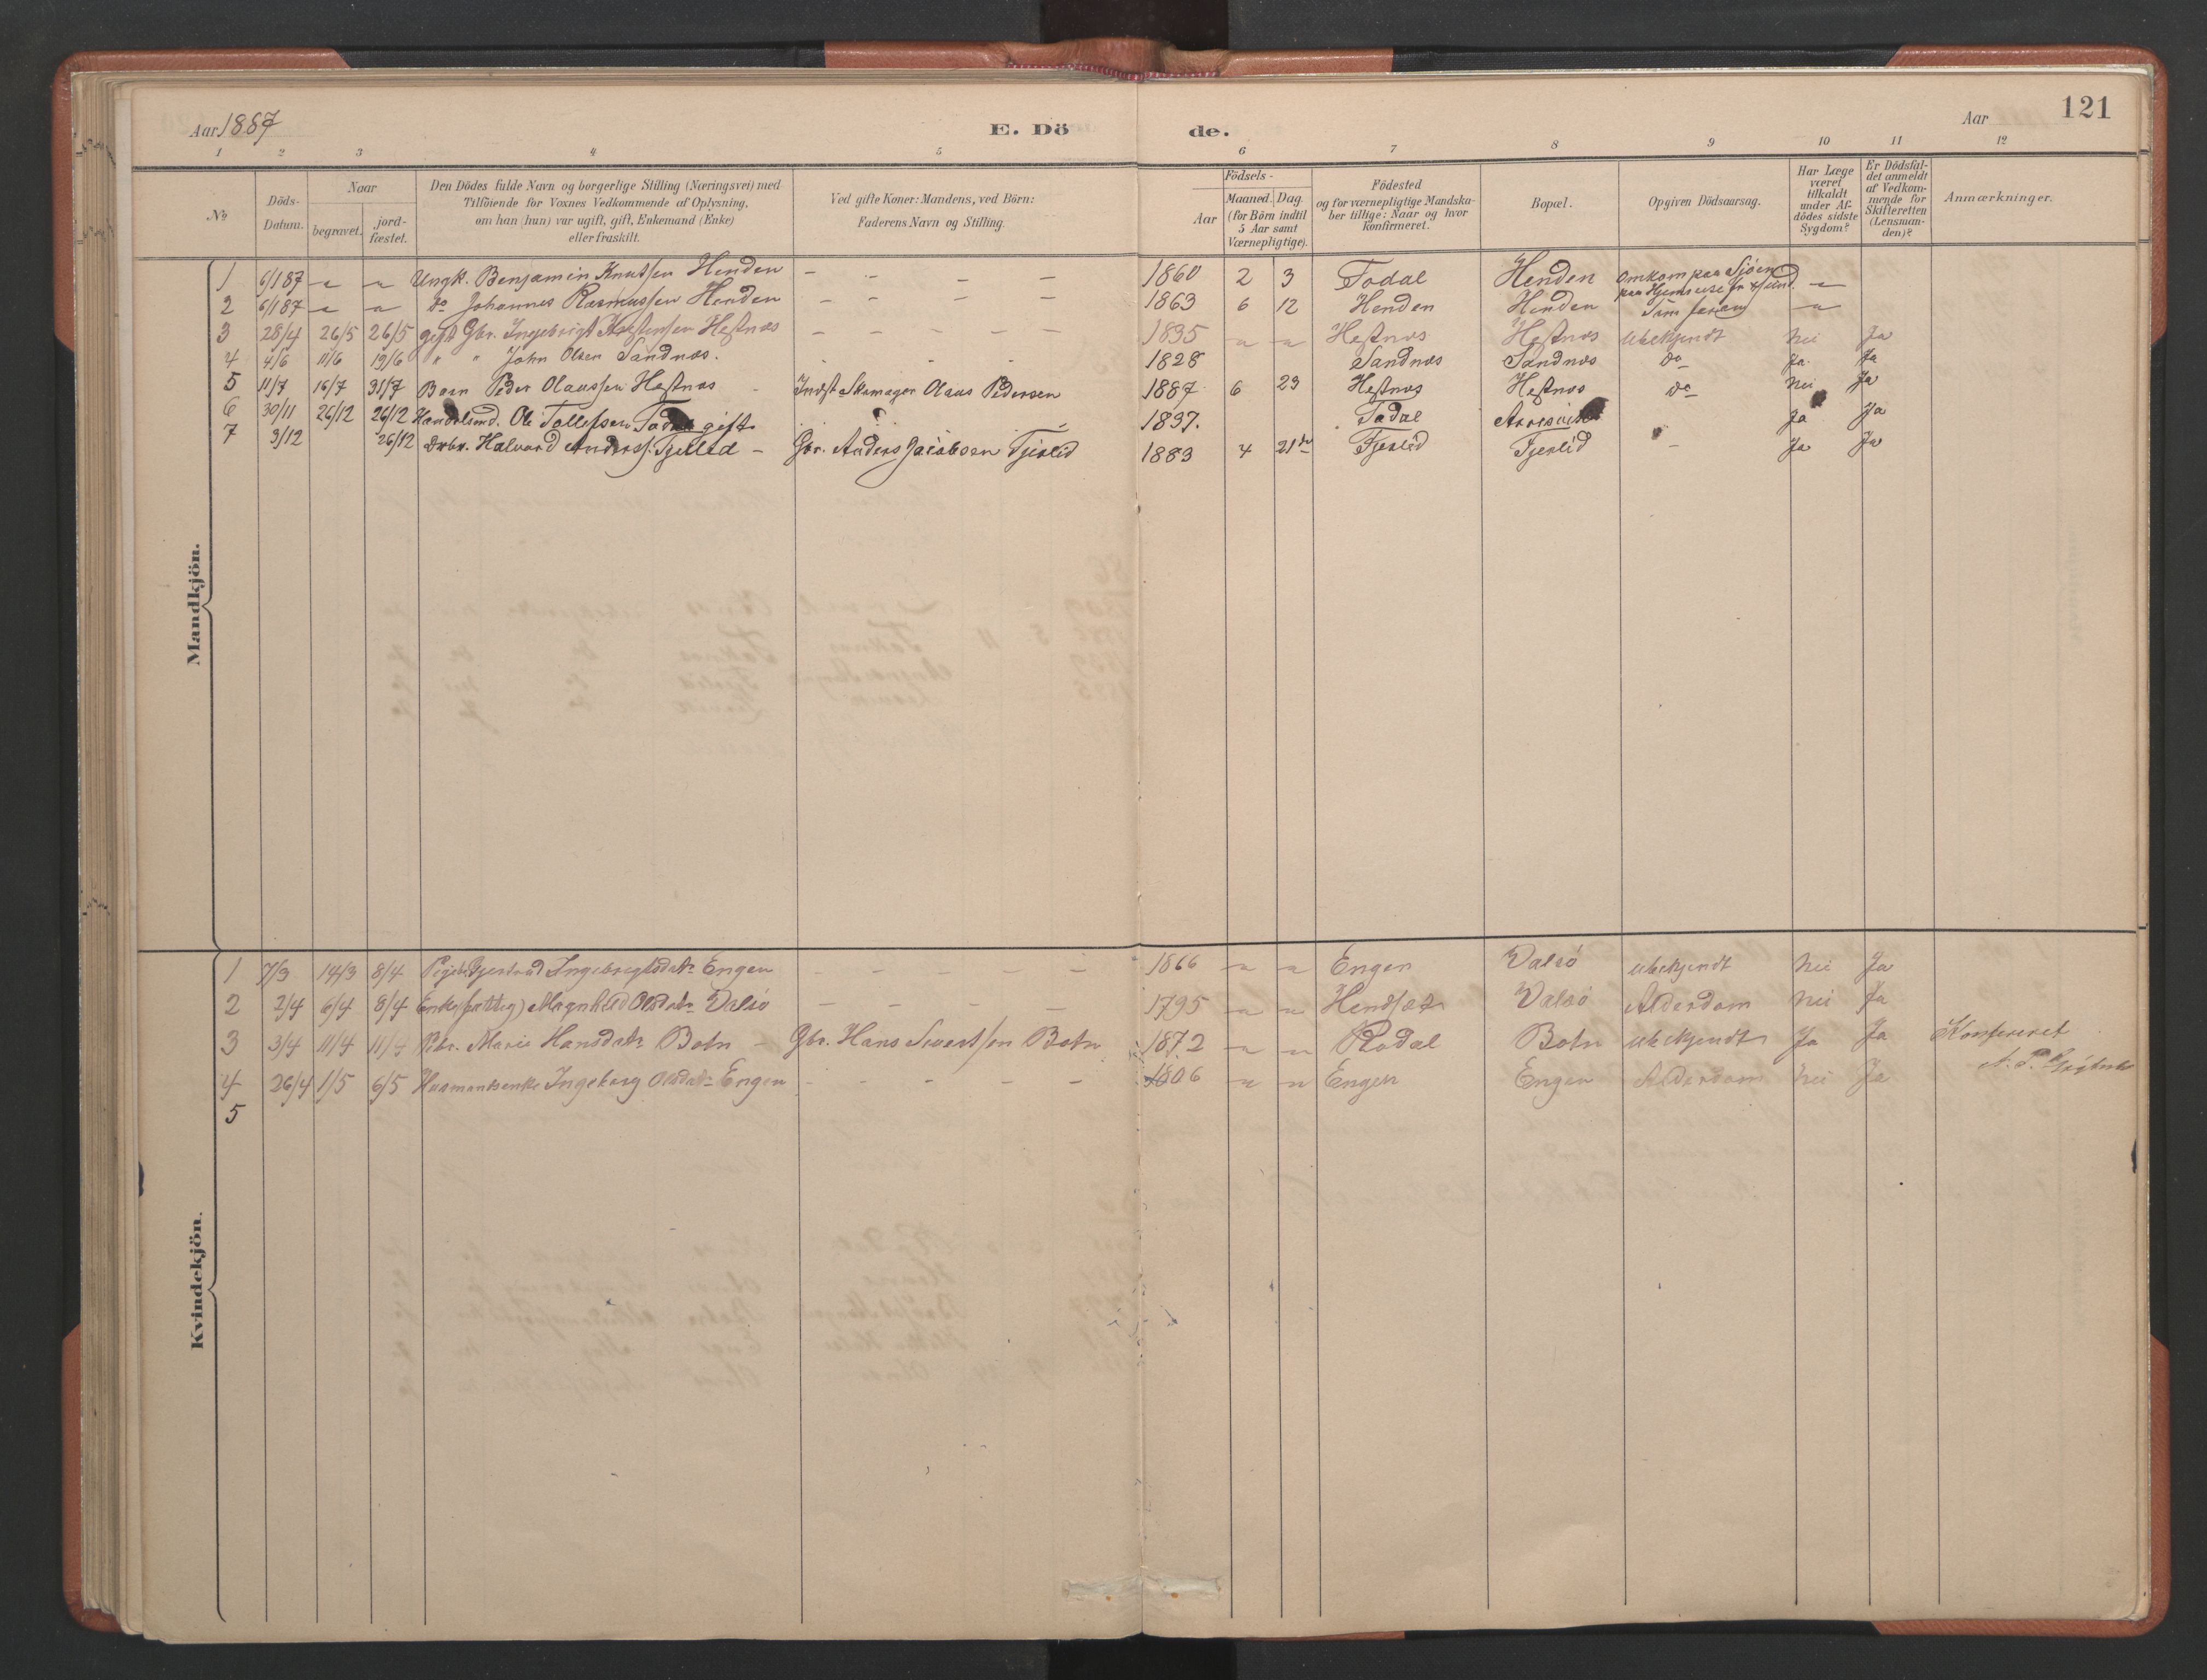 Aar 1887
E. Dö
de.
Aar
121
1 2 3 4 5 6 7 8 9 10 11 12
No
Döds-Datum.
Naar
begravet.
jord-fæstet.
Den Dödes fulde Navn og borgerlige Stilling (Næringsvei) med
Tilföiende for Voxnes Vedkommende af Oplysning,
om han (hun) var ugift, gift, Enkemand (Enke)
eller fraskilt.
Ved gifte Koner: Mandens, ved Börn:
Faderens Navn og Stilling.
Födsels-
Aar
Maaned. Dag.
(for Börn indtil
5 Aar samt
Værnepligtige).
Födested
og for værnepligtige Mandska-
ber tillige: Naar og hvor
konfirmeret.
Bopæl.
Opgiven Dödsaarsag.
Har Læge
været
tilkaldt
under Af-
dödes sidste
Sygdom?
Er Dödsfal-
det anmeldt
af Vedkom-
mende for
Skifteretten
(Lensman-
den)?
Anmærkninger.
Mandkjön.
1 6/1 87 - - Ungk. Benjamin Knutsen Henden - - - - 1860 2 3 Todal Henden Omkom paa Sjöen -
2 6/1 87 - - Do Johannes Rasmussen Henden - - - - 1863 6 12 Henden Henden -
3 28/4 26/5 26/5 gift Gbr. Ingebrigt Hestnæs - - - - - 1835 - - Hestnæs Hestnæs Ubekjendt Nei Ja
4 4/6 11/6 19/6 " " John Olsen Sandnæs. - - - 1828 Sandnæs Sandnæs Do Ja Ja
5 11/7 16/7 31/7 Barn Peder Olaussen Hestnæs - Indst Skomager Olaus Pedersen 1887 6 23 Hestnæs Hestnæs Do Nei Ja
6 30/11 26/12 26/12 Handelsmd. Ole Tollefsen gift 1837. Todal Ja Ja
7 3/12 26/12 Halvard Anderss. - Gbr. Anders Jacobsen Fjerlid 1883 4 21de Fjerlid Fjerlid - Ja Ja
Kvindekjön.
1 7/3 14/3 8/4 Gjertrud Ingebregtsdatr Engen - - - - - 1866 - - Engen Valsö Ubekjendt Nei Ja
2 2/4 6/4 8/4 Enke (fattig) Magnhild Olsdatr Valsö - - - - 1795 - - Hendset Valsö Alderdom Nei Ja
3 3/4 11/4 11/4 Marie Hansdatr Botn - Gbr. Hans Sivertsen Botn 1872 - - Rodal Botn Ubekjendt Ja Ja Konfereret
4 26/4 1/5 6/5 Husmandsenke Ingeborg Olsdatr Engen - - - - - 1806 - - Engen Engen Alderdom Nei Ja
5